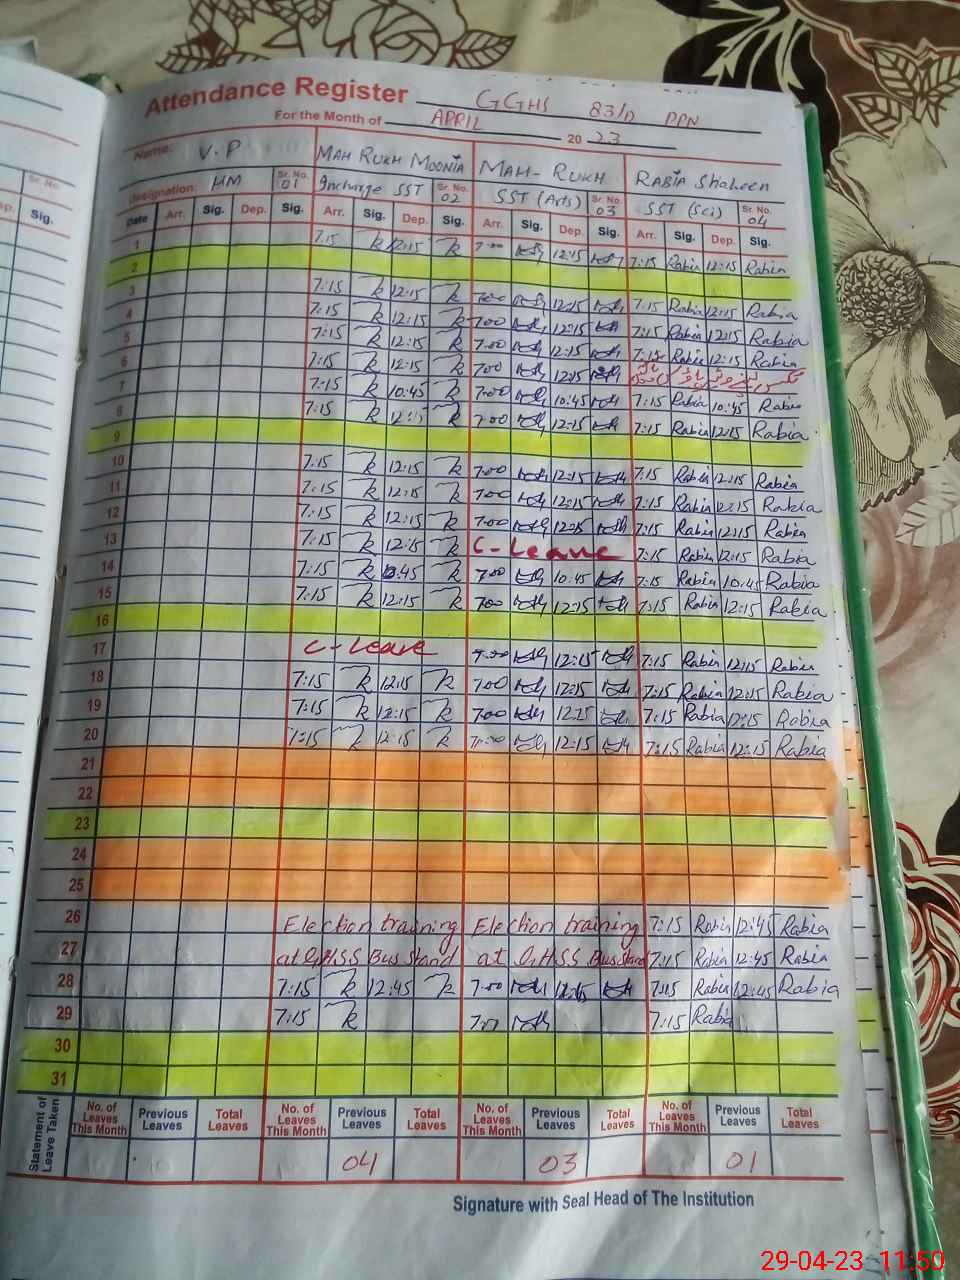 Attendance Register GGHS 83/D PPN
For the Month of APRIL 2023
Name: V.P MAH RUKH MOONIA MAH-RUKH RABIA Shaheen
Designation: HM Sr. No. 01 Incharge SST Sr. No. 02 SST (Arts) Sr. No. 03 SST (Sci) Sr. No. 04
Date Arr. Sig. Dep. Sig. Arr. Sig. Dep. Sig. Arr. Sig. Dep. Sig. Arr. Sig. Dep. Sig.
1 7:15 12:15 7:00 12:15 7:15 Rabia 12:15 Rabia
2
3 7:15 12:15 7:00 12:15 7:15 Rabia 12:15 Rabia
4 7:15 12:15 7:00 12:15 7:15 Rabia 12:15 Rabia
5 7:15 12:15 7:00 12:15 7:15 Rabia 12:15 Rabia
6 7:15 12:15 7:00 12:15
7 7:15 10:45 7:00 10:45 7:15 Rabia 10:45 Rabia
8 7:15 12:15 7:00 12:15 7:15 Rabia 12:15 Rabia
9
10 7:15 12:15 7:00 12:15 7:15 Rabia 12:15 Rabia
11 7:15 12:15 7:00 12:15 7:15 Rabia 12:15 Rabia
12 7:15 12:15 7:00 12:15 7:15 Rabia 12:15 Rabia
13 7:15 12:15 C-Leave 7:15 Rabia 12:15 Rabia
14 7:15 10:45 7:00 10:45 7:15 Rabia 10:45 Rabia
15 7:15 12:15 7:00 12:15 7:15 Rabia 12:15 Rabia
16
17 C-Leave 7:00 12:15 7:15 Rabia 12:15 Rabia
18 7:15 12:15 7:00 12:15 7:15 Rabia 12:15 Rabia
19 7:15 12:15 7:00 12:15 7:15 Rabia 12:15 Rabia
20 7:15 12:15 7:00 12:15 7:15 Rabia 12:15 Rabia
21
22
23
24
25
26 Election training Election training 7:15 Rabia 12:45 Rabia
27 at GHSS Bus Stand at GHSS Bus Stand 7:15 Rabia 12:45 Rabia
28 7:15 12:45 7:00 7:15 Rabia 12:45 Rabia
29 7:15 7:00 7:15 Rabia
30
31
Statement of Leave Taken No. of Leaves This Month Previous Leaves Total Leaves No. of Leaves This Month Previous Leaves Total Leaves No. of Leaves This Month Previous Leaves Total Leaves No. of Leaves This Month Previous Leaves Total Leaves
04 03 01
Signature with Seal Head of The Institution
29-04-23 11:50